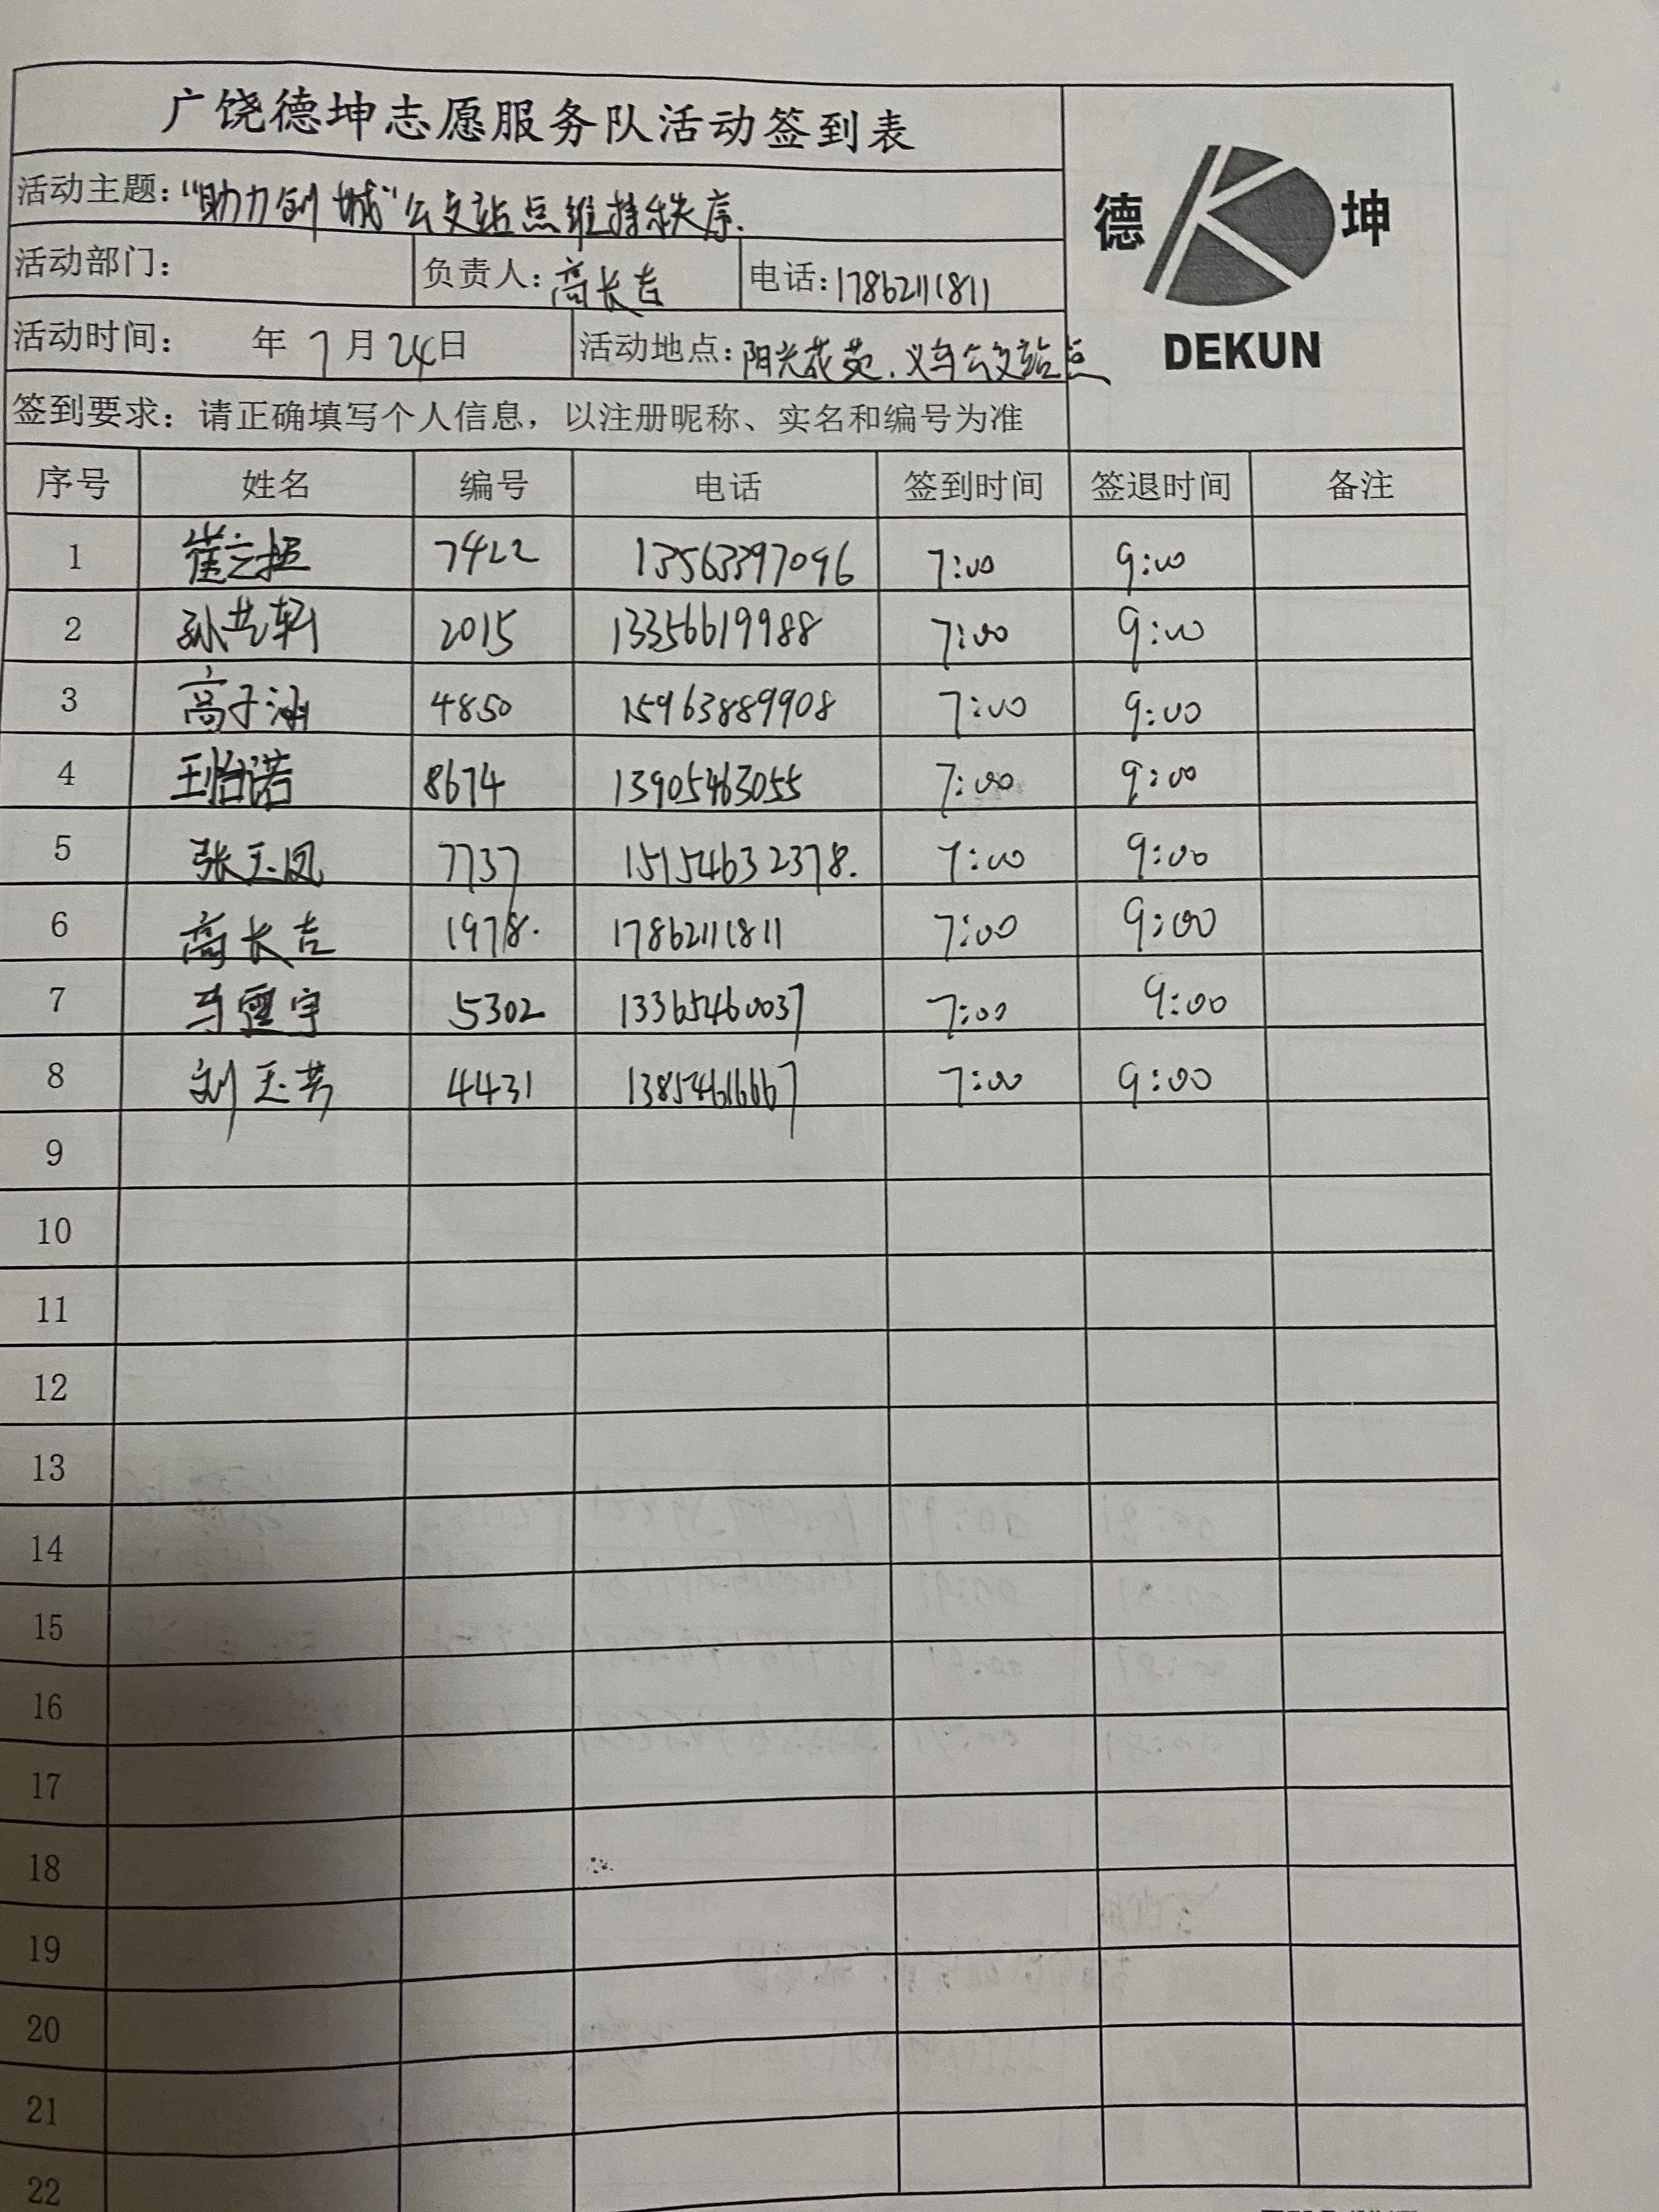 广饶德坤志愿服务队活动签到表
活动主题：“助力创城”公交站点维持秩序.
德 坤
DEKUN
活动部门： 负责人：高长吉 电话：17862111811
活动时间： 年 7 月 24 日 活动地点：阳光花苑.义乌公交站点
签到要求：请正确填写个人信息，以注册昵称、实名和编号为准
序号 姓名 编号 电话 签到时间 签退时间 备注
1 崔云 7422 13563397096 7:00 9:00
2 孙艺轩 2015 13356619988 7:00 9:00
3 高子涵 4850 15963889908 7:00 9:00
4 王怡诺 8674 13905463055 7:00 9:00
5 张玉凤 7737 15154632378. 7:00 9:00
6 高长吉 1978. 17862111811 7:00 9:00
7 马 宇 5302 13365460037 7:00 9:00
8 刘玉芳 4431 13854616667 7:00 9:00
9
10
11
12
13
14
15
16
17
18
19
20
21
22